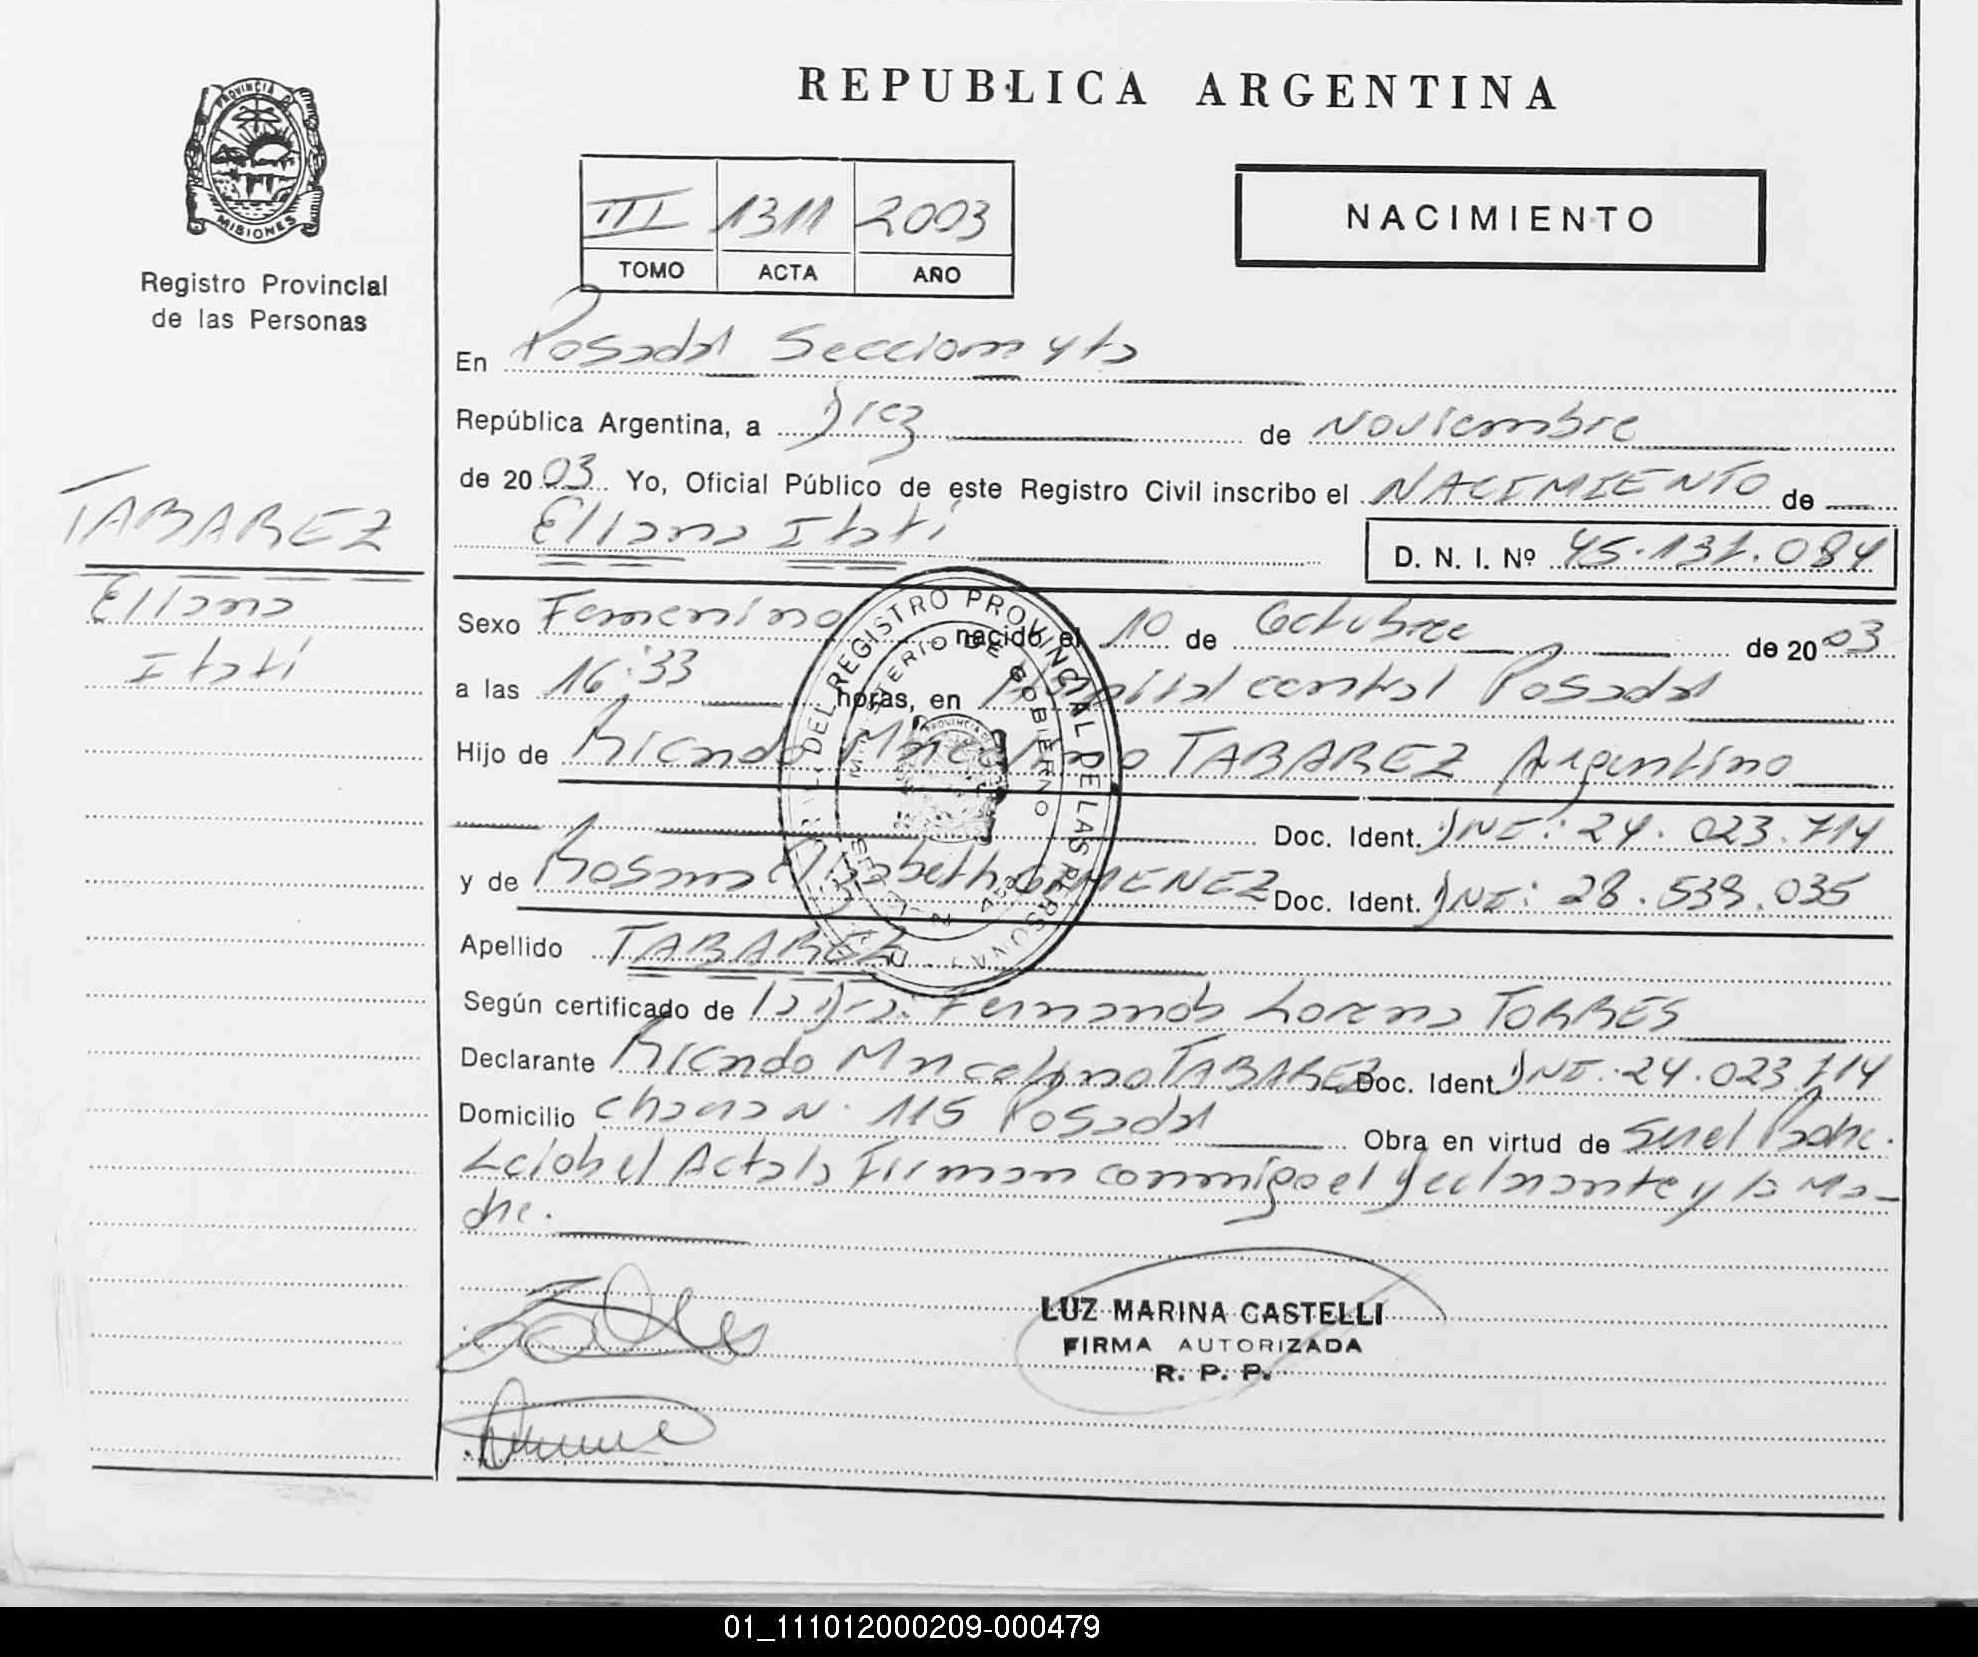 PROVINCIA DE
MISIONES
Registro Provincial
de las Personas
TABAREZ
Eliana
Itatí
REPUBLICA ARGENTINA
III 1311 2003
TOMO ACTA AÑO
NACIMIENTO
En Posadas Seccion 4ta
República Argentina, a Diez de Noviembre
de 2003 Yo, Oficial Público de este Registro Civil inscribo el NACIMIENTO de
Eliana Itatí D. N. I. Nº 45.131.084
Sexo Femenino nacido el 10 de Octubre de 2003
a las 16:33 horas, en Hospital central Posadas
Hijo de Ricardo Marcelino TABAREZ Argentino
Doc. Ident. DNI: 24.023.714
y de Rosana Elizabeth GIMENEZ Doc. Ident. DNI: 28.539.035
Apellido TABAREZ
Según certificado de la Dra. Fernanda Lorena TORRES
Declarante Ricardo Marcelino TABAREZ Doc. Ident. DNI: 24.023.714
Domicilio N. 115 Posadas Obra en virtud de Ser el Padre.
Leida el Acta la Firman conmigo el Declarante y la Ma-
dre.
LUZ MARINA CASTELLI
FIRMA AUTORIZADA
R. P. P.
DEL REGISTRO PROVINCIAL DE LAS PERSONAS
MINISTERIO DE GOBIERNO
01_111012000209-000479